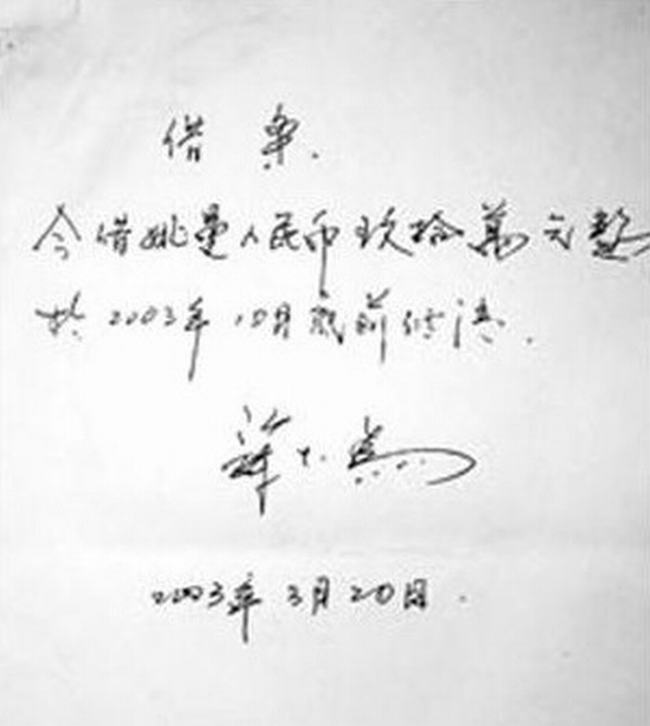 借条.
今借姚曼人民币玖拾萬元整
于2003年10月底前付清.
2003年3月20日.